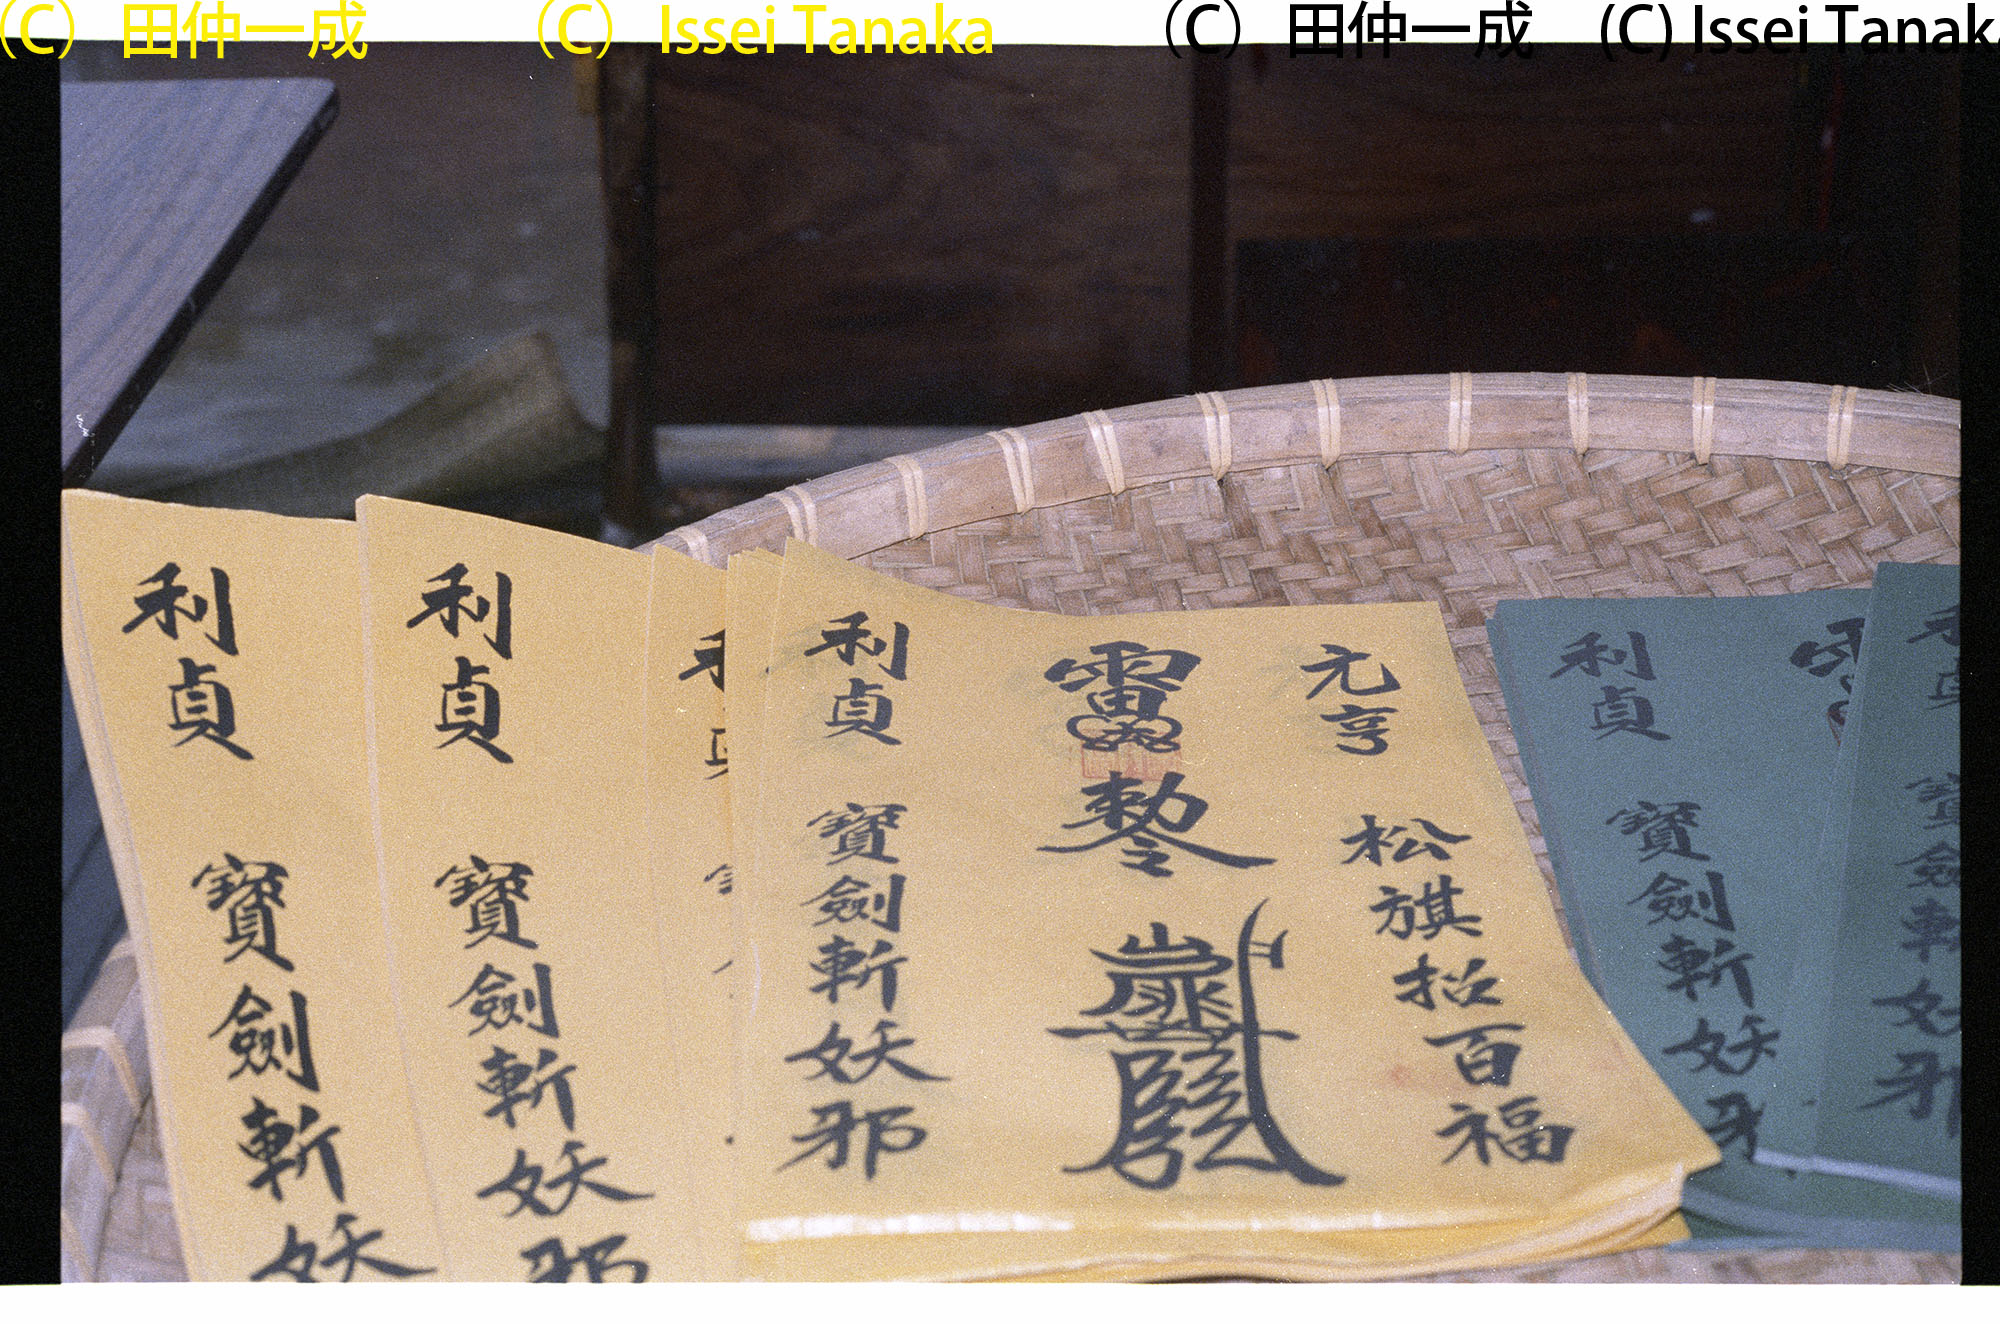 (C) 田仲一成 (C) Issei Tanaka (C) 田仲一成 (C) Issei Tanaka
元亨 松旗招百福
雷 敕令
利貞 寶劍斬妖邪
利貞 寶劍斬妖邪
利貞 寶劍斬妖
利貞 寶劍斬妖邪
寶劍斬妖邪